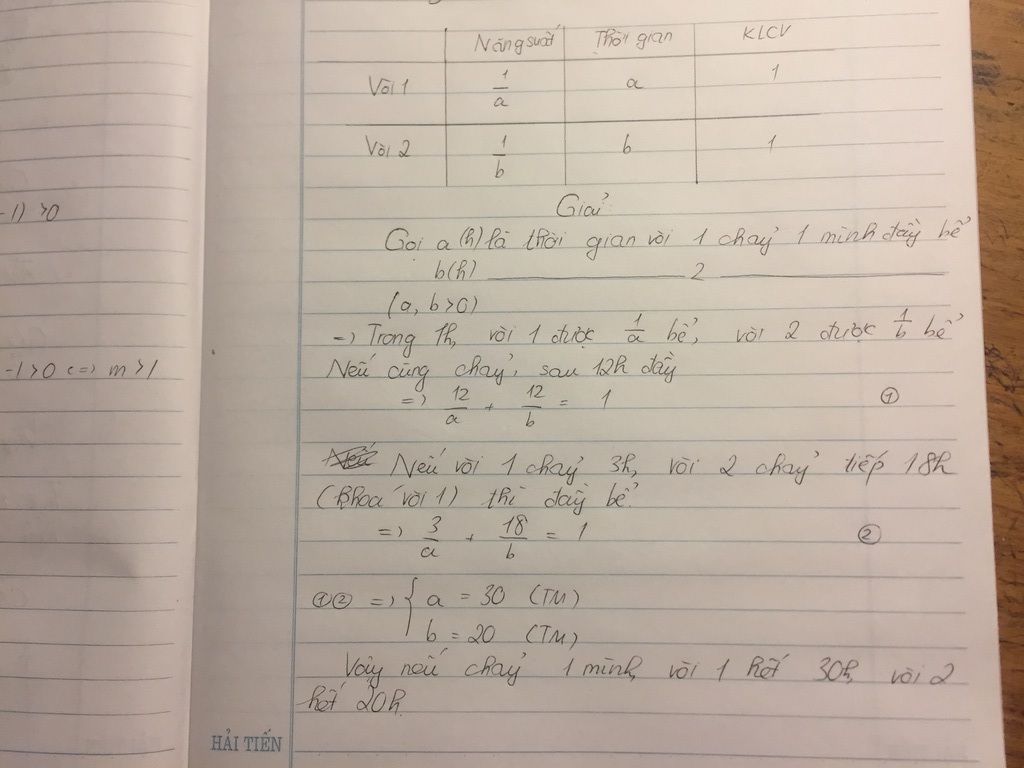 Năng suất Thời gian KLCV
Vòi 1 1/a a 1
Vòi 2 1/b b 1
Giải
-1) >0
Gọi a (h) là thời gian vòi 1 chảy 1 mình đầy bể
b(h) ———— 2 ————
(a, b >0)
=> Trong 1h, vòi 1 được 1/a bể, vòi 2 được 1/b bể
-1 >0 <=> m >1
Nếu cùng chảy, sau 12h đầy
=> 12/a + 12/b = 1 ①
Nếu vòi 1 chảy 3h, vòi 2 chảy tiếp 18h
(khoá vòi 1) thì đầy bể.
=> 3/a + 18/b = 1 ②
①② => { a = 30 (TM)
b = 20 (TM)
Vậy nếu chảy 1 mình, vòi 1 hết 30h, vòi 2
hết 20h.
HẢI TIẾN